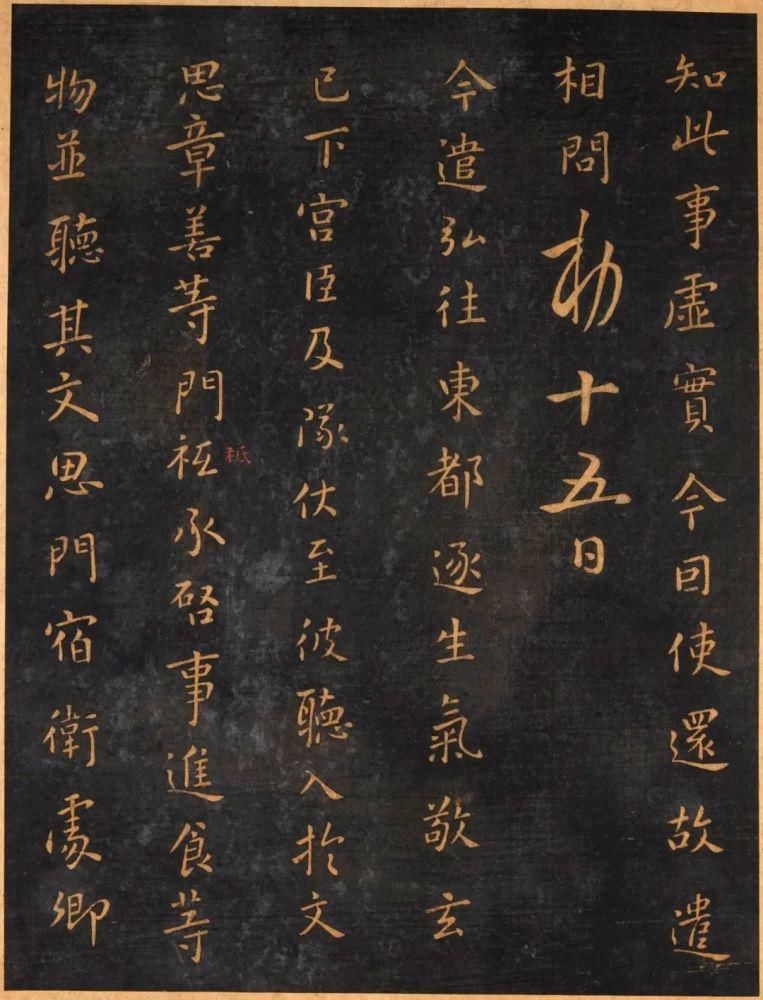 知此事虛實今回使還故遣
相問勅十五日
今遣弘往東都逐生氣敬玄
已下宮臣及隊仗至彼聽入於文
思章善等門祗承啓事進食等
祗
物並聽其文思門宿衛處卿